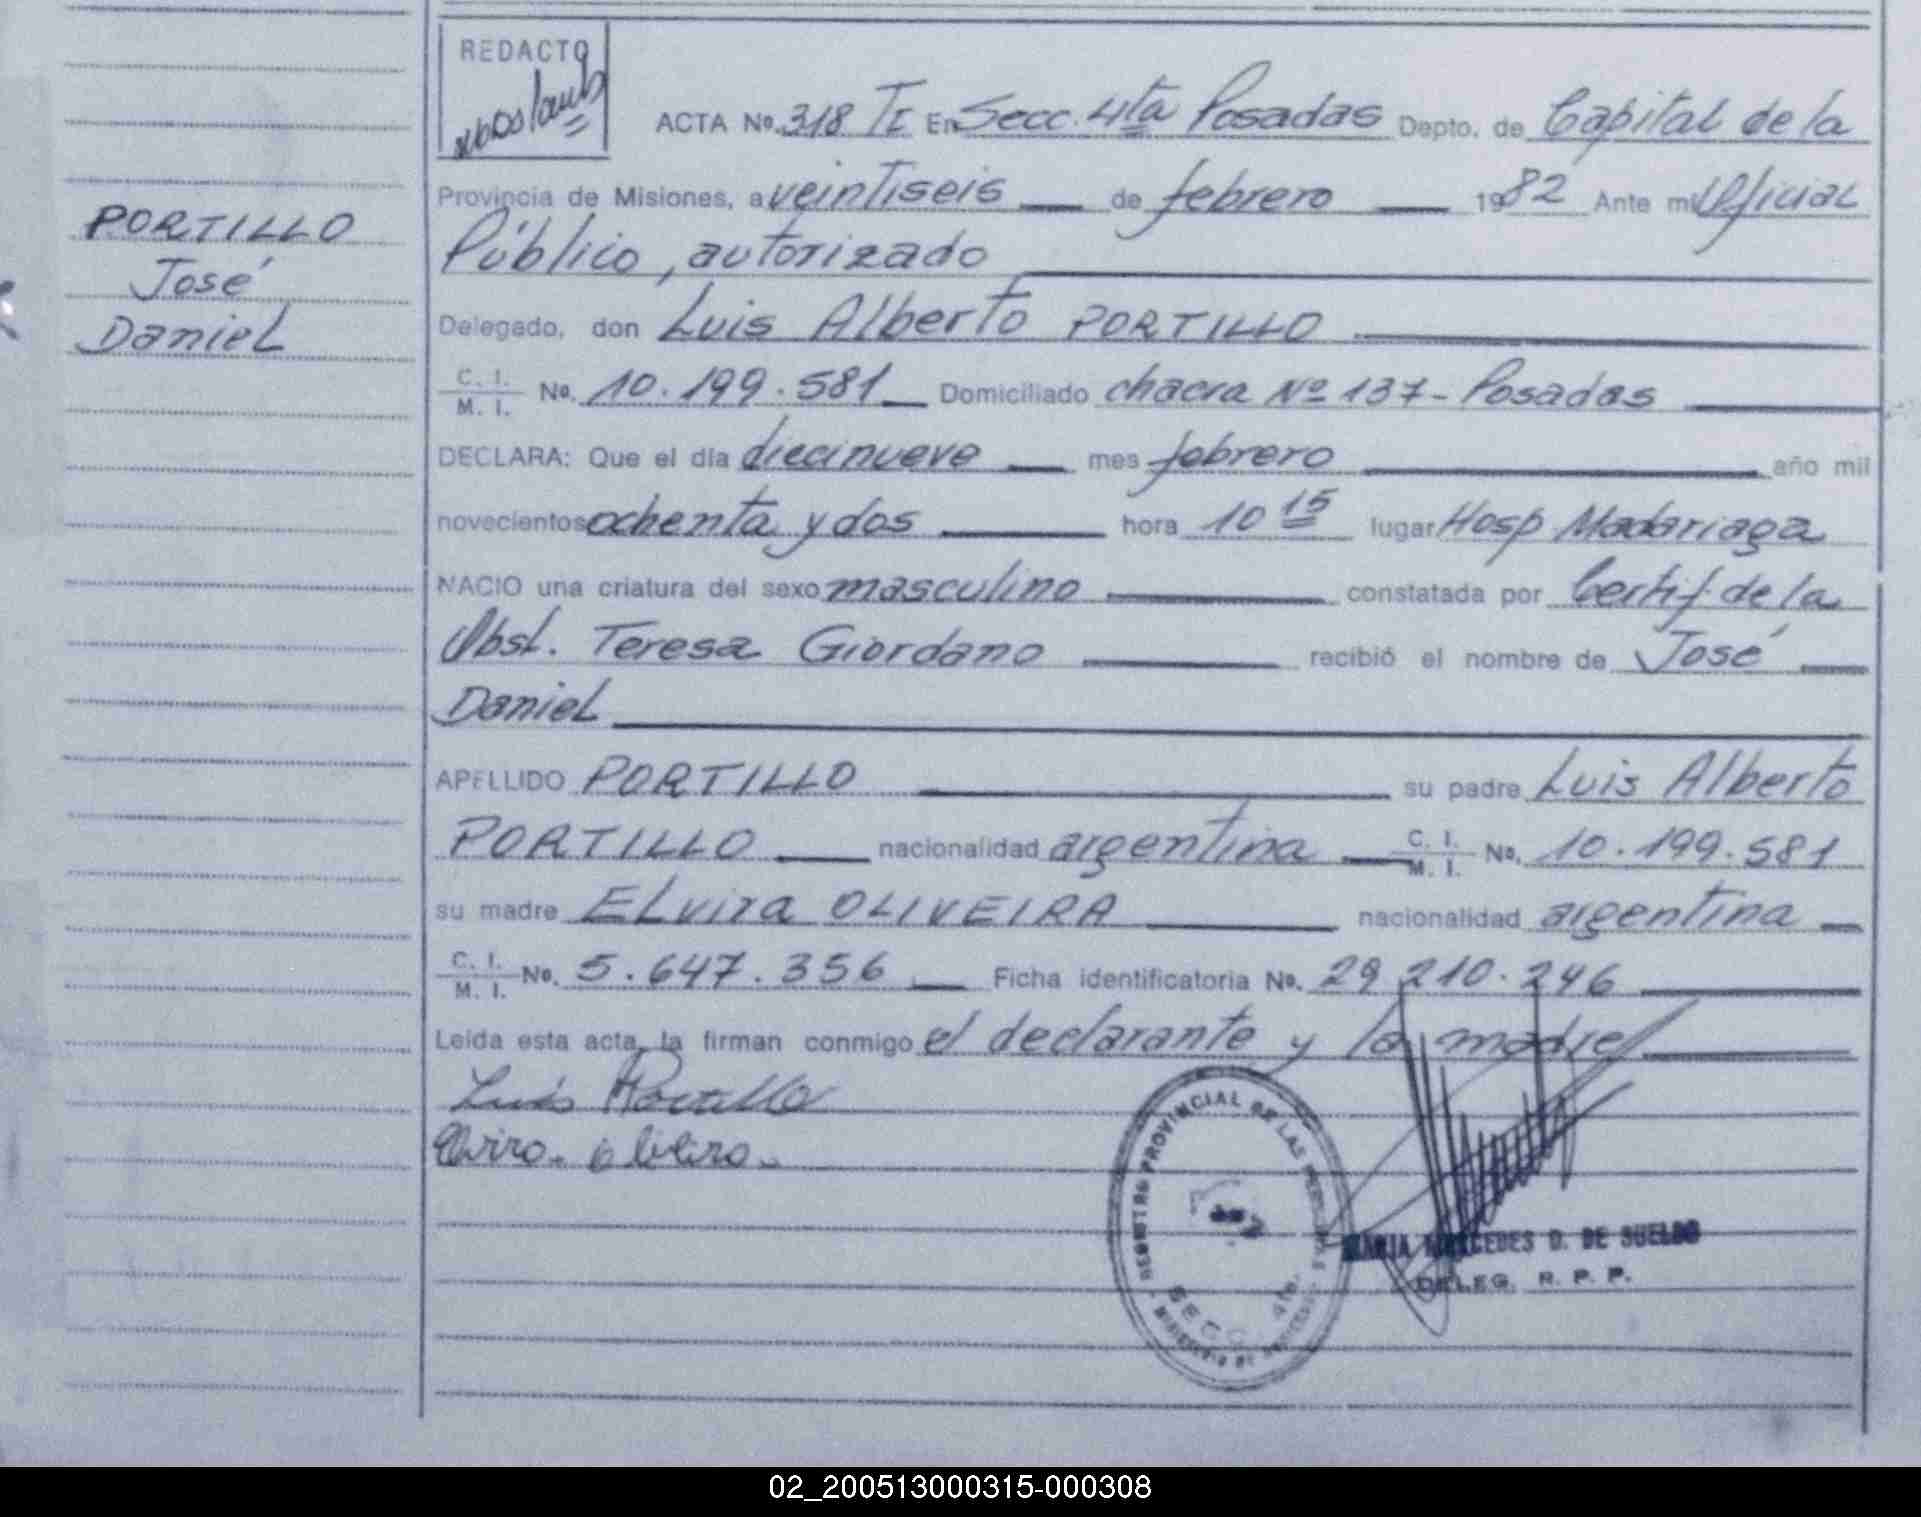 REDACTO
ACTA No. 318 TI En Secc. 4ta Posadas Depto. de Capital de la
Provincia de Misiones, a veintiseis de febrero 1982 Ante mi Oficial
Público, autorizado
PORTILLO
José
Daniel
Delegado, don Luis Alberto PORTILLO
C. I.
M. I. No. 10.199.581 Domiciliado chacra Nº 137 - Posadas
DECLARA: Que el día diecinueve mes febrero año mil
novecientos ochenta y dos hora 10 15 lugar Hosp Madariaga
NACIO una criatura del sexo masculino constatada por Certif. de la
Obst. Teresa Giordano recibió el nombre de José
Daniel
APELLIDO PORTILLO su padre Luis Alberto
PORTILLO nacionalidad argentina C. I. M. I. No. 10.199.581
su madre ELvira OLIVEIRA nacionalidad argentina
C. I.
M. I. No. 5.647.356 Ficha identificatoria No. 29.210.246
Leída esta acta, la firman conmigo el declarante y la madre
Luis Portillo
REGISTRO PROVINCIAL DE LAS PERSONAS
SECC. 4ta.
MARIA MERCEDES D. DE SUELDO
DELEG. R. P. P.
02_200513000315-000308